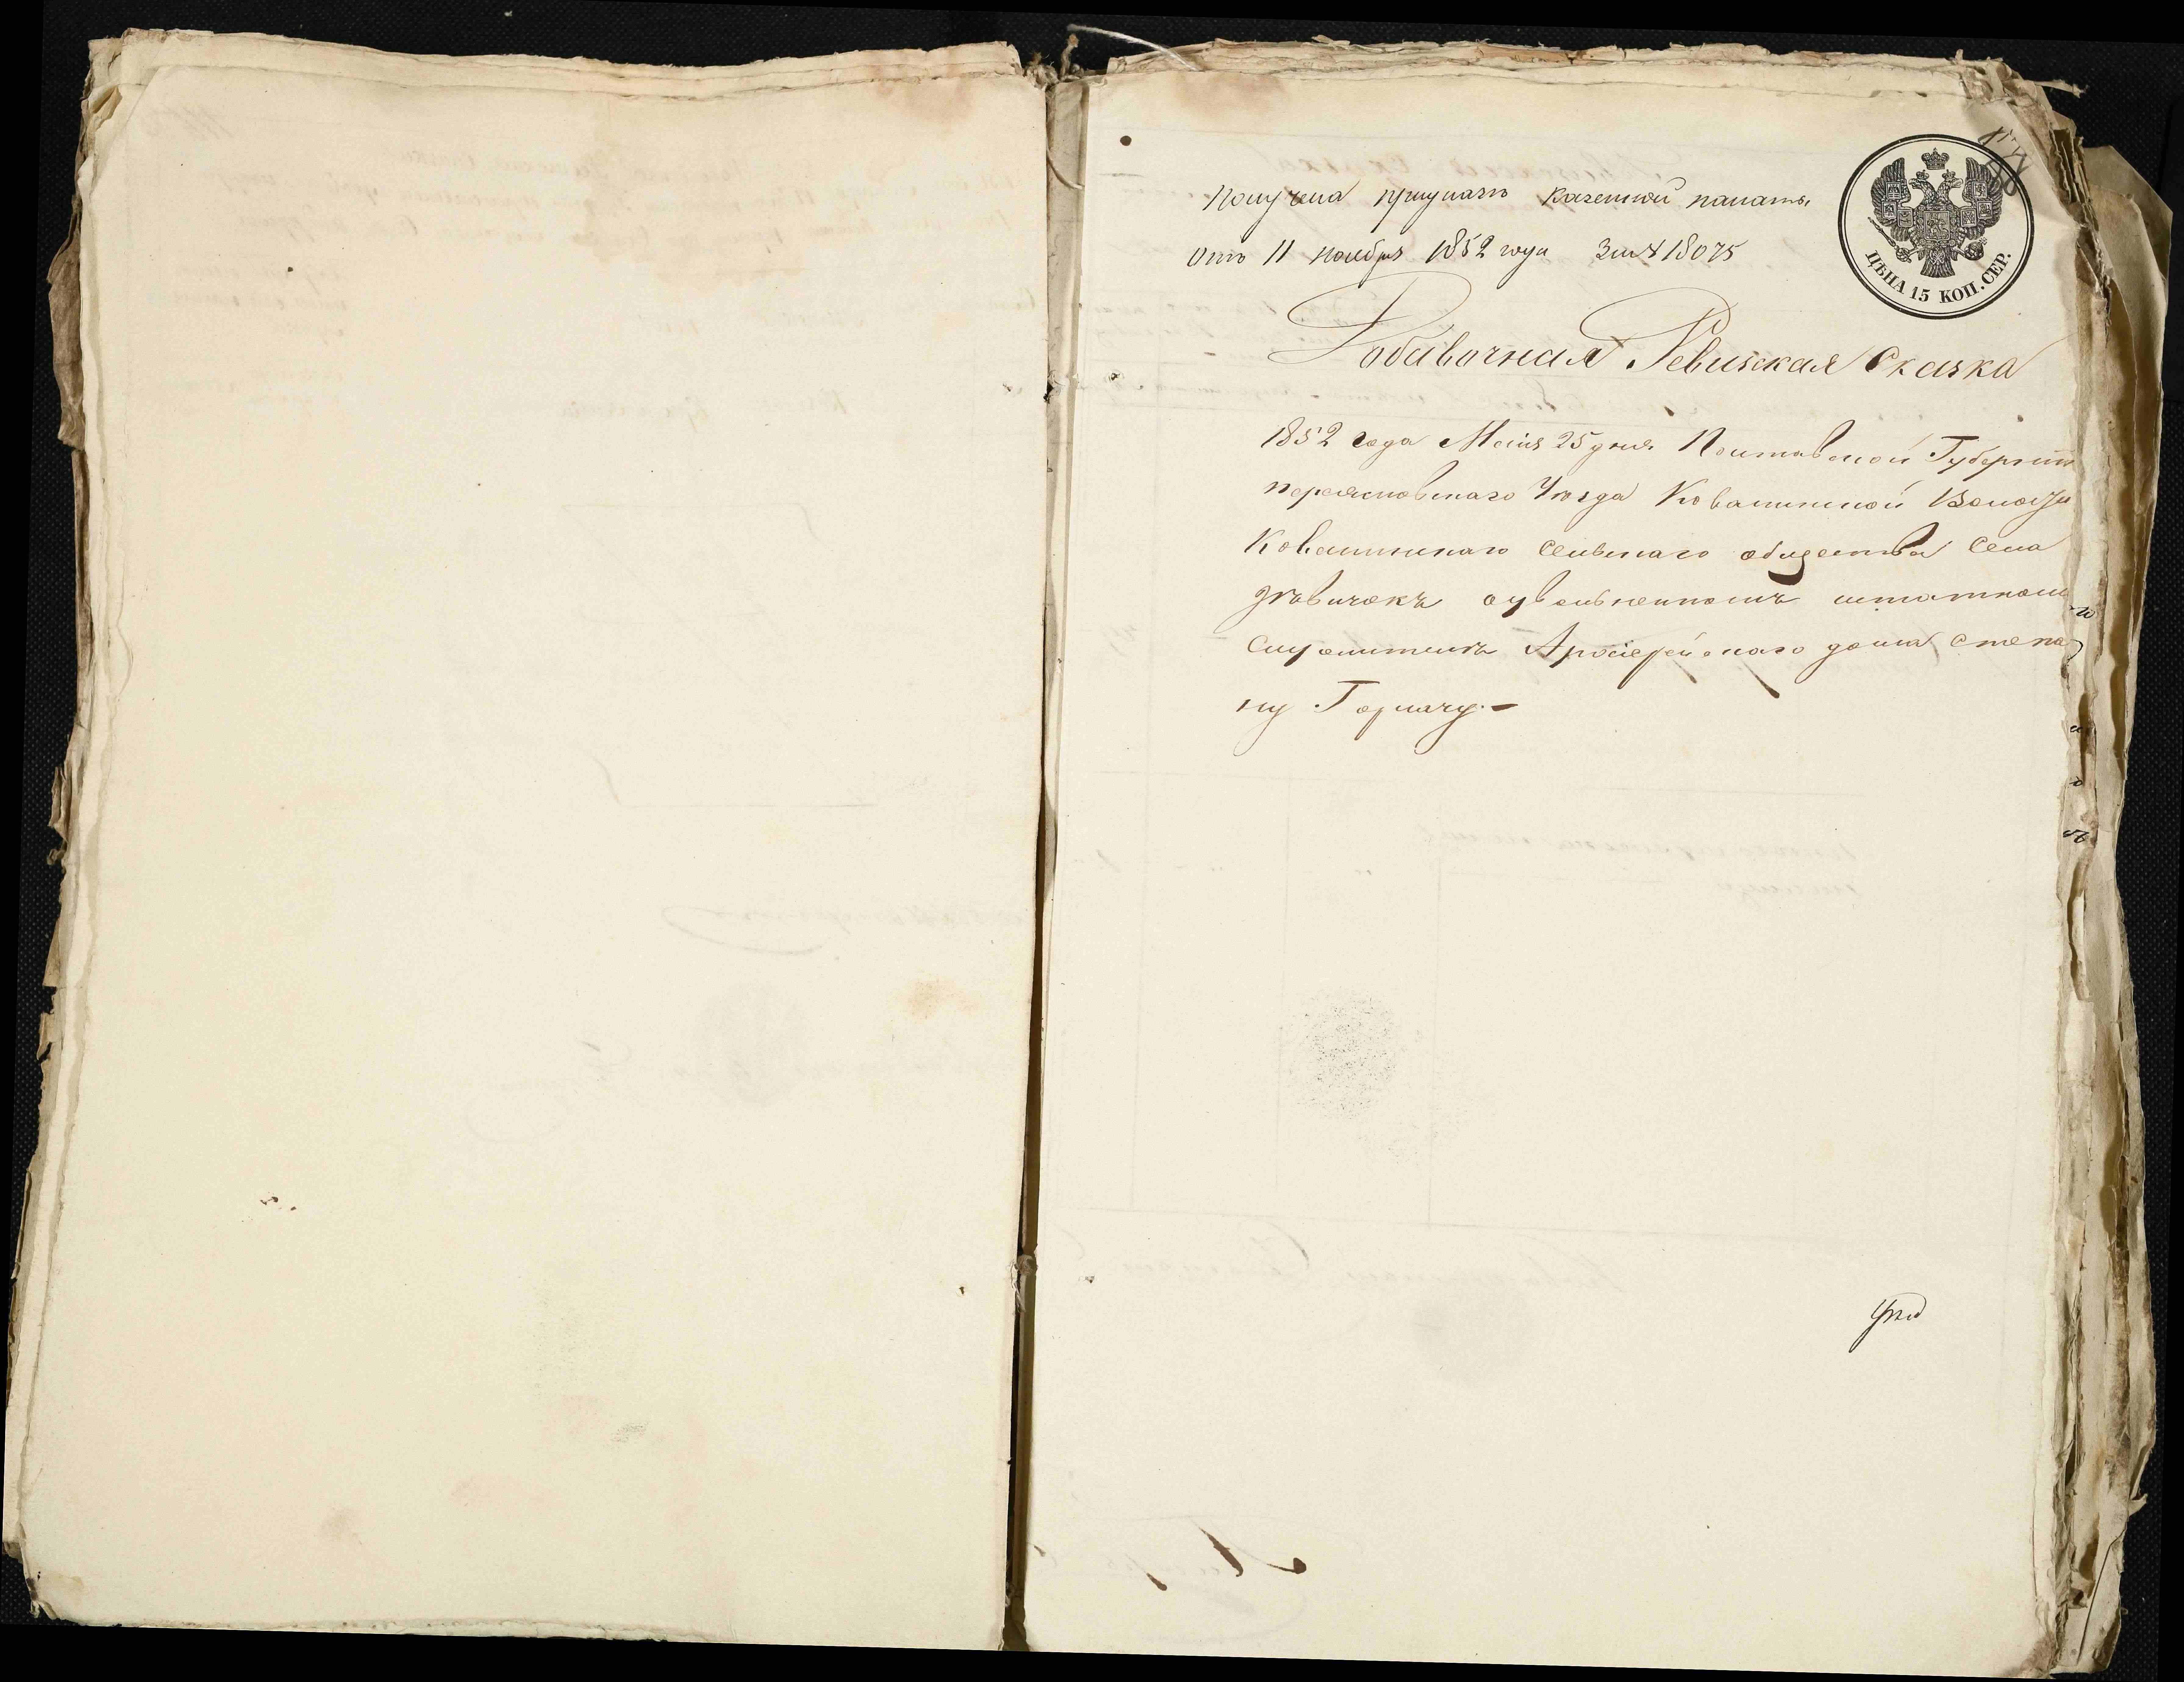 Получена приуказъ казенной палаты
отъ 11 ноября 1852 года За № 18075
ЦѢНА 15 КОП. СЕР.
Добавочная Ревизская Сказка
1852 года Маія 25 дня. Полтавской Губерніи
переяславскаго Уѣзда Ковалинской Волости
Ковалинскаго Сельскаго общества Села
дѣвичокъ оувольненномъ штатномъ
Служителѣ Архіерейскаго дома Степа
ну Горпачу.-